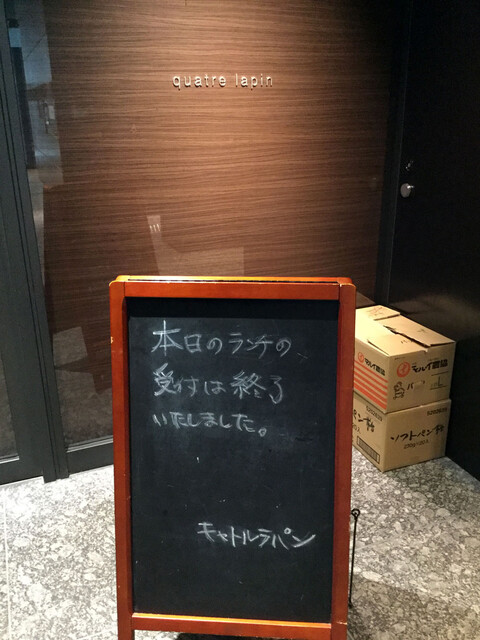 quatre lapin
本日のランチの
受付は終了
いたしました。
キャトルラパン
マルイ農協
ソフトパン粉